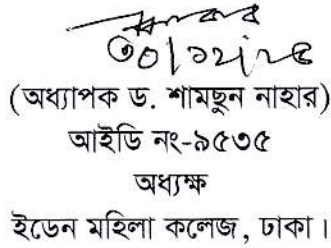 ৩০/১২/২৫
(অধ্যাপক ড. শামছুন নাহার)
আইডি নং-৯৫৩৫
অধ্যক্ষ
ইডেন মহিলা কলেজ, ঢাকা।